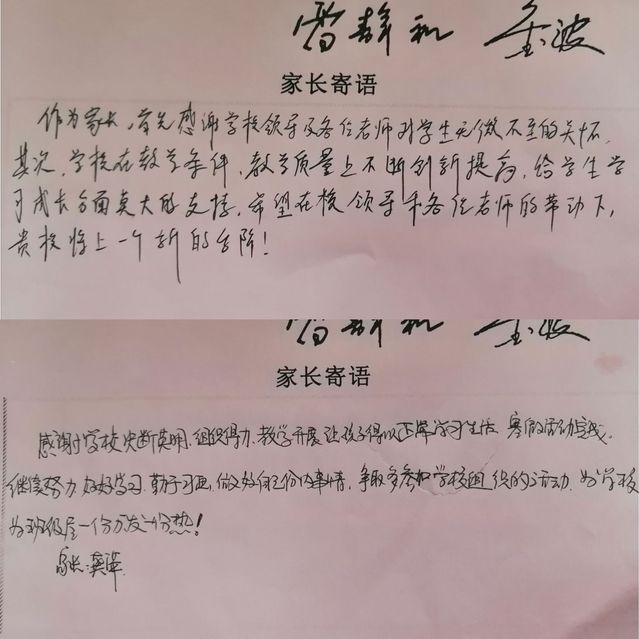 雷静和 金波
家长寄语
作为家长,首先感谢学校领导及各位老师对学生无微不至的关怀.
其次,学校在教学条件,教学质量上不断创新提高,给学生学
习成长方面莫大的支持,希望在校领导和各位老师的带动下,
贵校将上一个新的台阶!
雷静和 金波
家长寄语
感谢学校决断英明.组织得力.教学开展让孩子得以正常学习生活.寒假活动
继续努力.好好学习.勤于习画,做好自己份内事情,争取多参加学校组织的活动.为学校
为班级尽一份力发一份热!
家长: